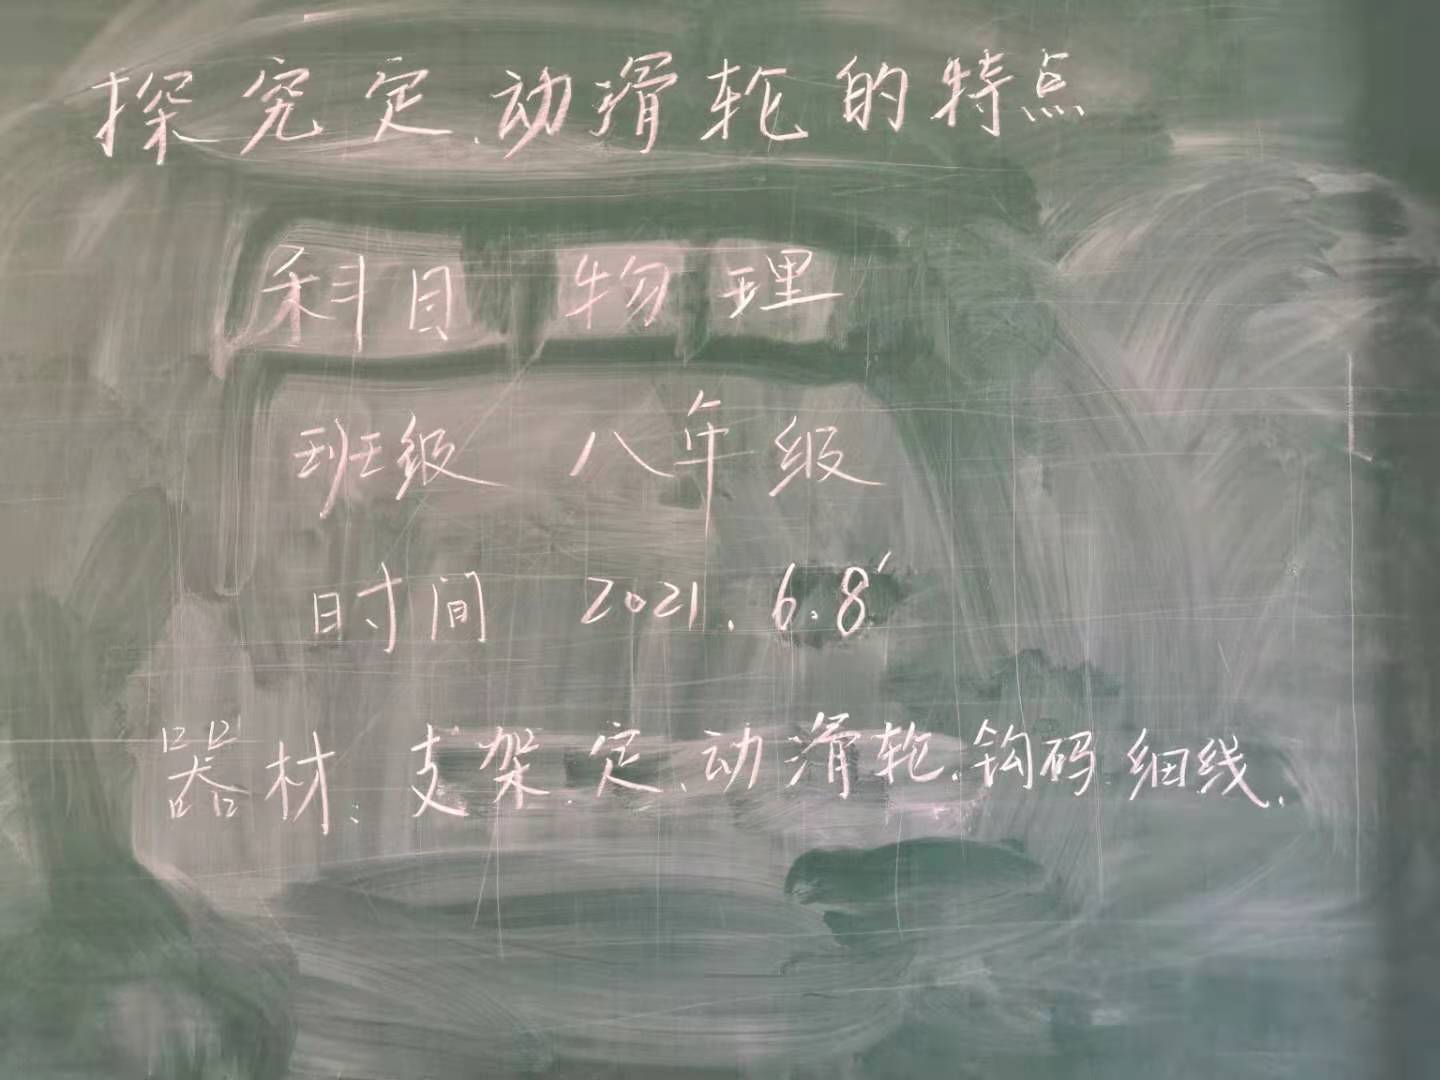 探究定、动滑轮的特点
科目 物理
班级 八年级
时间 2021.6.8
器材：支架.定、动滑轮.钩码.细线.